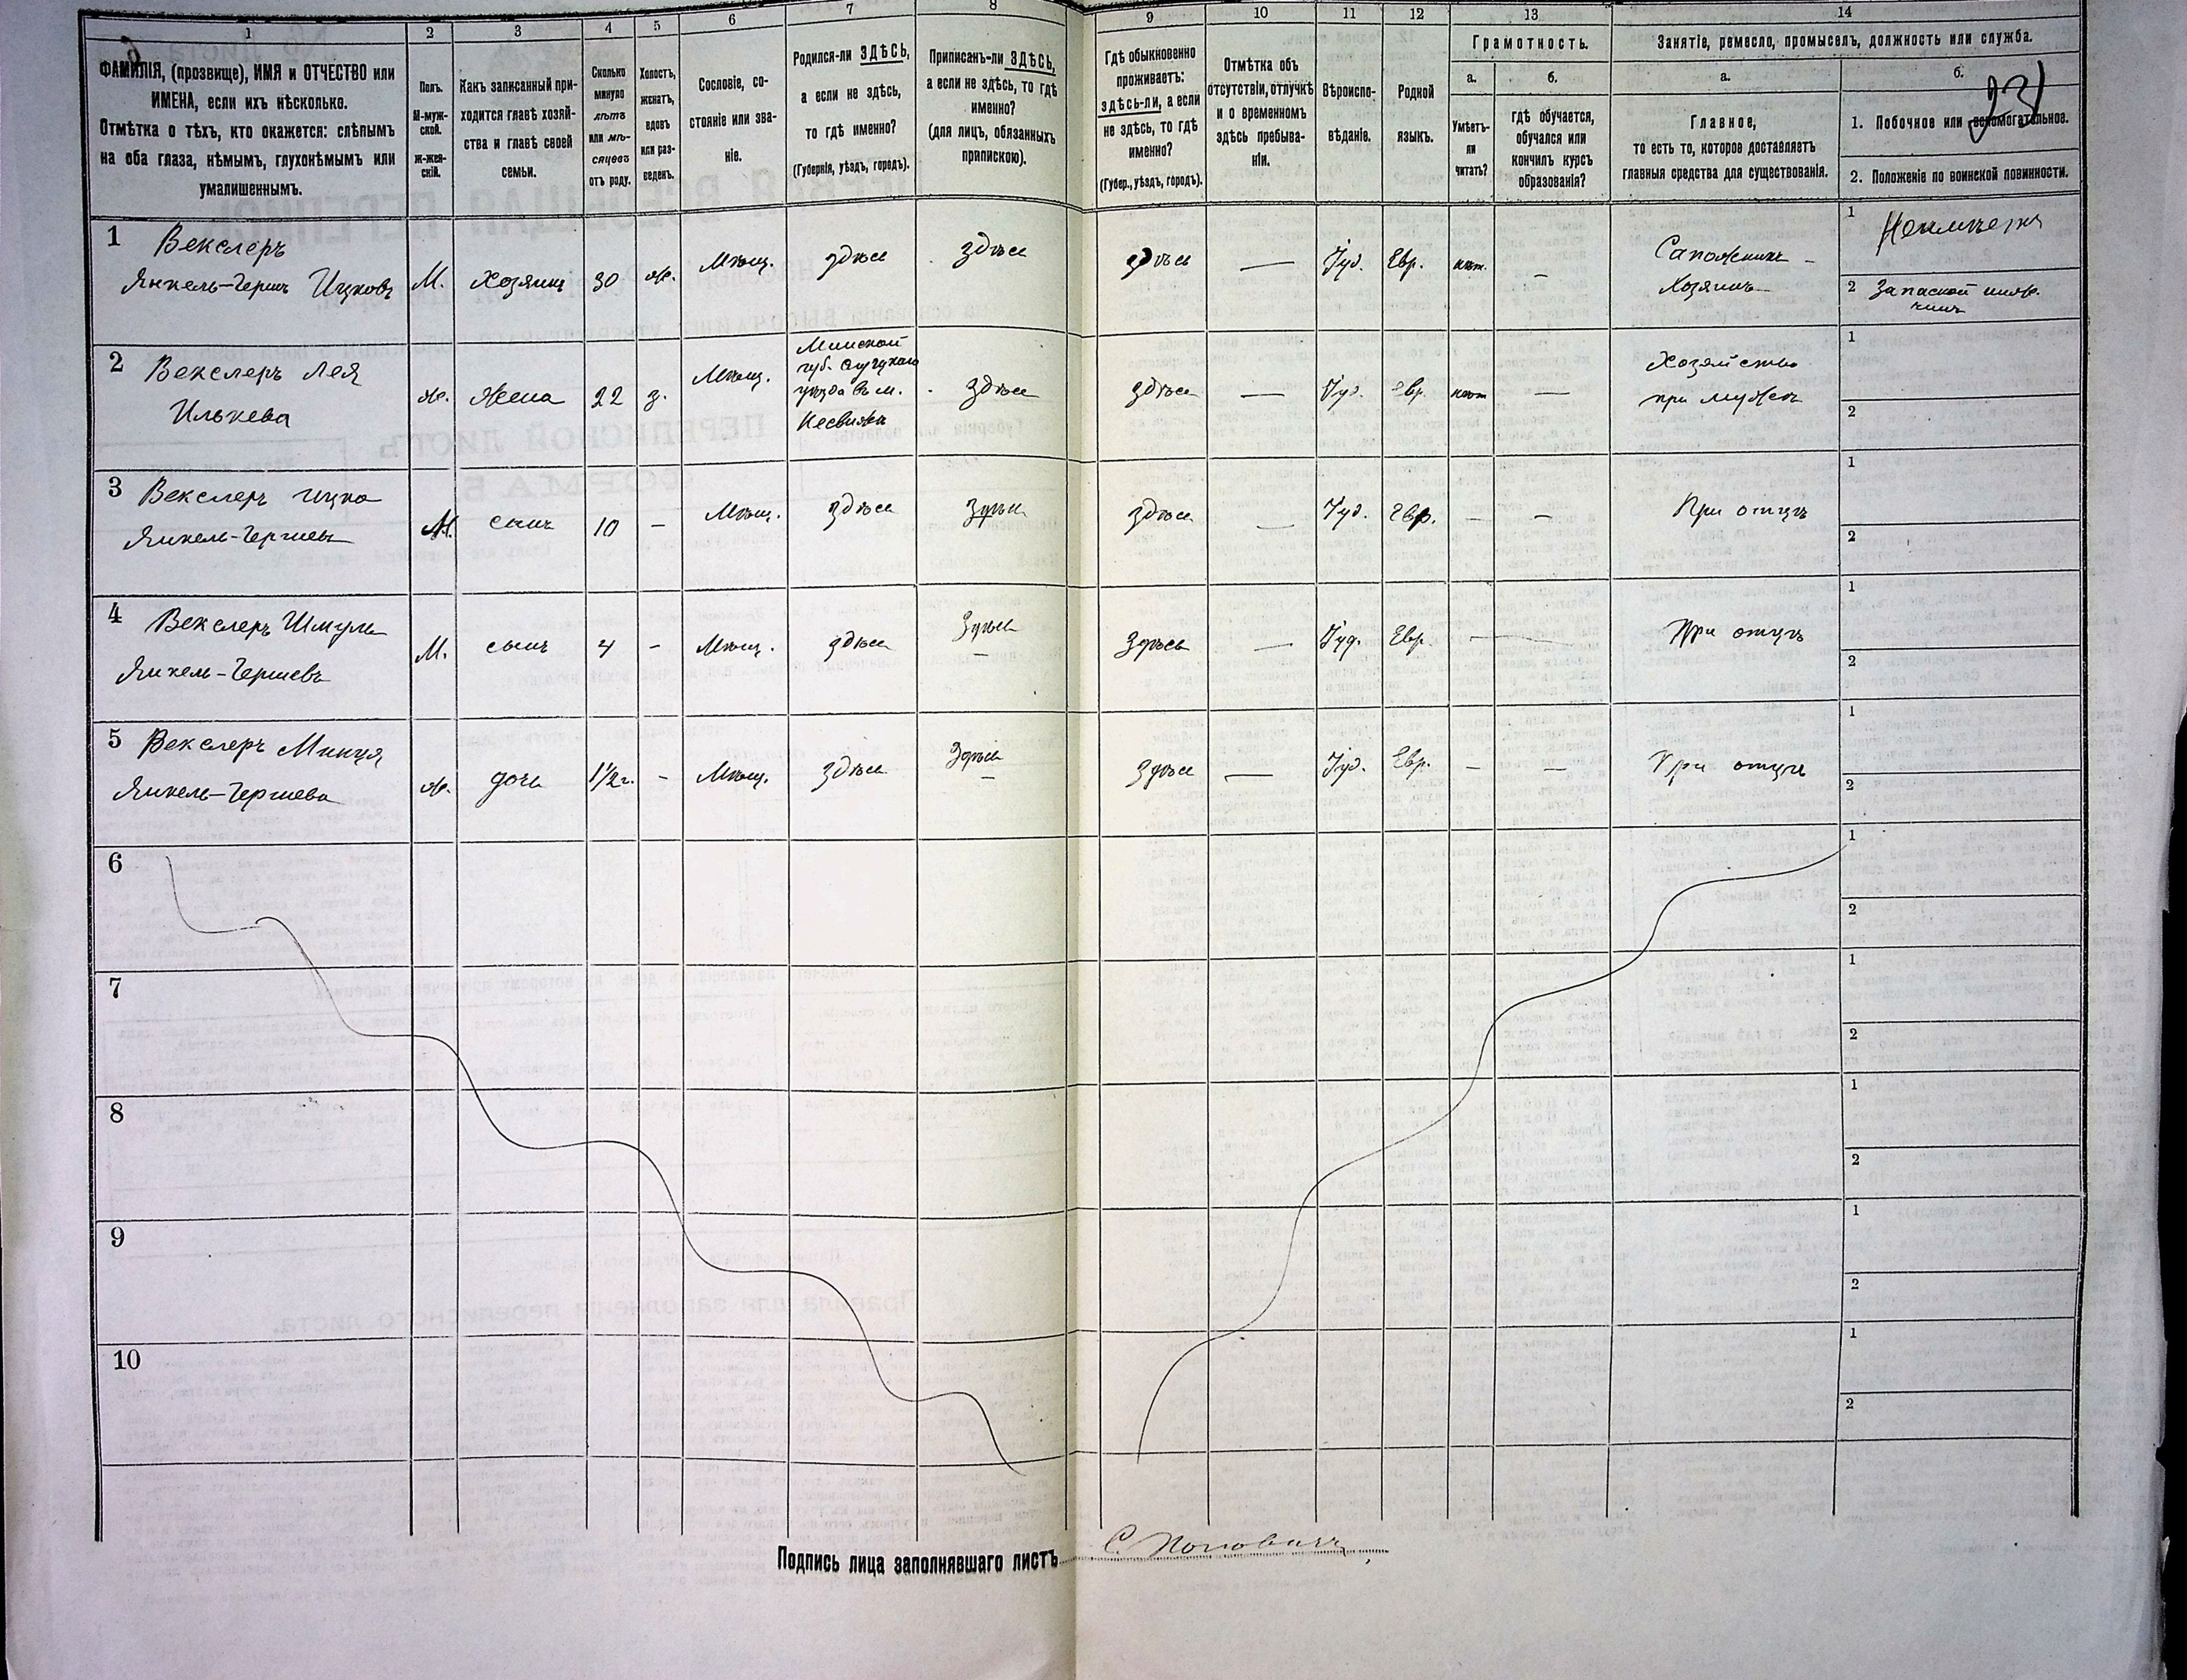 1 2 3 4 5 6 7 8 9 10 11 12 13 14
ФАМИЛІЯ, (прозвище), ИМЯ и ОТЧЕСТВО или
ИМЕНА, если ихъ нѣсколько.
Отмѣтка о тѣхъ, кто окажется: слѣпымъ
на оба глаза, нѣмымъ, глухонѣмымъ или
умалишеннымъ.
Полъ.
М-муж-
ской.
ж-жен-
скій.
Какъ записанный при-
ходится главѣ хозяй-
ства и главѣ своей
семьи.
Сколько
минуло
лѣтъ
или мѣ-
сяцевъ
отъ роду.
Холостъ,
женатъ,
вдовъ
или раз-
веденъ.
Сословіе, со-
стояніе или зва-
ніе.
Родился-ли ЗДѢСЬ,
а если не здѣсь,
то гдѣ именно?
(Губернія, уѣздъ, городъ).
Приписанъ-ли ЗДѢСЬ,
а если не здѣсь, то гдѣ
именно?
(для лицъ, обязанныхъ
припискою).
Гдѣ обыкновенно
проживаетъ:
здѣсь-ли, а если
не здѣсь, то гдѣ
именно?
(Губер., уѣздъ, городъ).
Отмѣтка объ
отсутствіи, отлучкѣ
и о временномъ
здѣсь пребыва-
ніи.
Вѣроиспо-
вѣданіе.
Родной
языкъ.
Грамотность.
а.
Умѣетъ-
ли
читать?
б.
гдѣ обучается,
обучался или
кончилъ курсъ
образованія?
Занятіе, ремесло, промыселъ, должность или служба.
а.
Главное,
то есть то, которое доставляетъ
главныя средства для существованія.
б.
23
1. Побочное или вспомогательное.
2. Положеніе по воинской повинности.
1 Векслеръ
Янкель-Гершъ Ицковъ
М. Хозяинъ 30 ж. Мѣщ. здѣсь здѣсь здѣсь — Іуд. Евр. нѣт. —
Сапожникъ -
Хозяинъ
1
2 Запасной
2 Векслеръ Лея
Илькева
ж. Жена 22 з. Мѣщ.
Минской
губ. Слуцкаго
уѣзда въ м.
Несвижъ
здѣсь здѣсь — Іуд. Евр. нѣт —
Хозяйство
при мужѣ
1
2
3 Векслеръ Ицко
Янкель-Гершев
М. сынъ 10 — Мѣщ. здѣсь здѣсь здѣсь — Іуд. Евр. — — При отцѣ
1
2
4 Векслеръ Шмуль
Янкель-Гершевъ
М. сынъ 4 - Мѣщ. здѣсь здѣсь здѣсь — Іуд. Евр. — При отцѣ
1
2
5 Векслеръ Минця
Янкель-Гершева
ж. дочь 1 1/2 г. - Мѣщ. здѣсь здѣсь здѣсь — Іуд. Евр. — — При отцѣ
1
2
6
1
2
7
1
2
8
1
2
9
1
2
10
1
2
Подпись лица заполнявшаго листъ С. Поповичъ